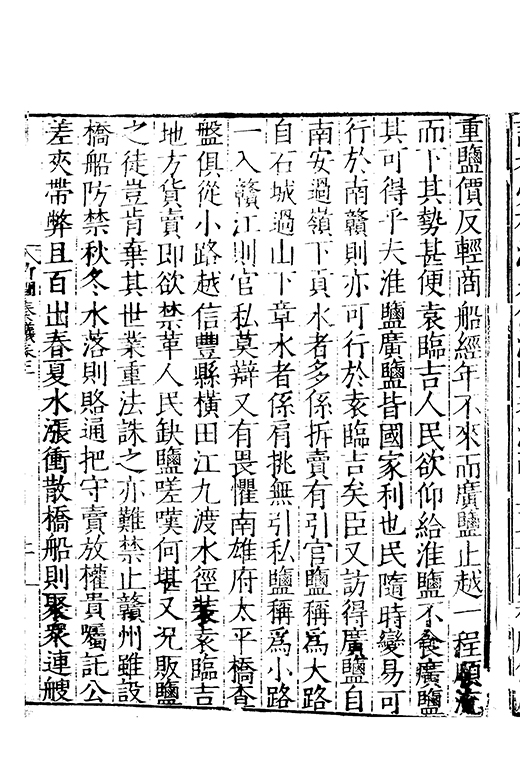 重鹽價反輕商船經年不來而廣鹽止越一程願流
而下其勢甚便袁臨吉人民欲仰給淮鹽不食廣鹽
其可得乎夫淮鹽廣鹽皆國家利也民隨時變易可
行於南贛則亦可行於袁臨吉矣臣又訪得廣鹽自
南安過嶺下貢水者多係拆賣有引官鹽稱爲大路
自石城過山下章水者係肩挑無引私鹽稱爲小路
一入贛江則官私莫辯又有畏懼南雄府太平橋查
盤俱從小路越信豐縣橫田江九渡水徑裝袁臨吉
地方貨賣即欲禁革人民缺鹽嗟嘆何堪又况販鹽
之徒豈肯棄其世業重法誅之亦難禁止贛州雖設
橋船防禁秋冬水落則賂通把守賣放權貴囑託公
差夾帶弊且百出春夏水漲衝散橋船則聚衆連艘
奏議卷三